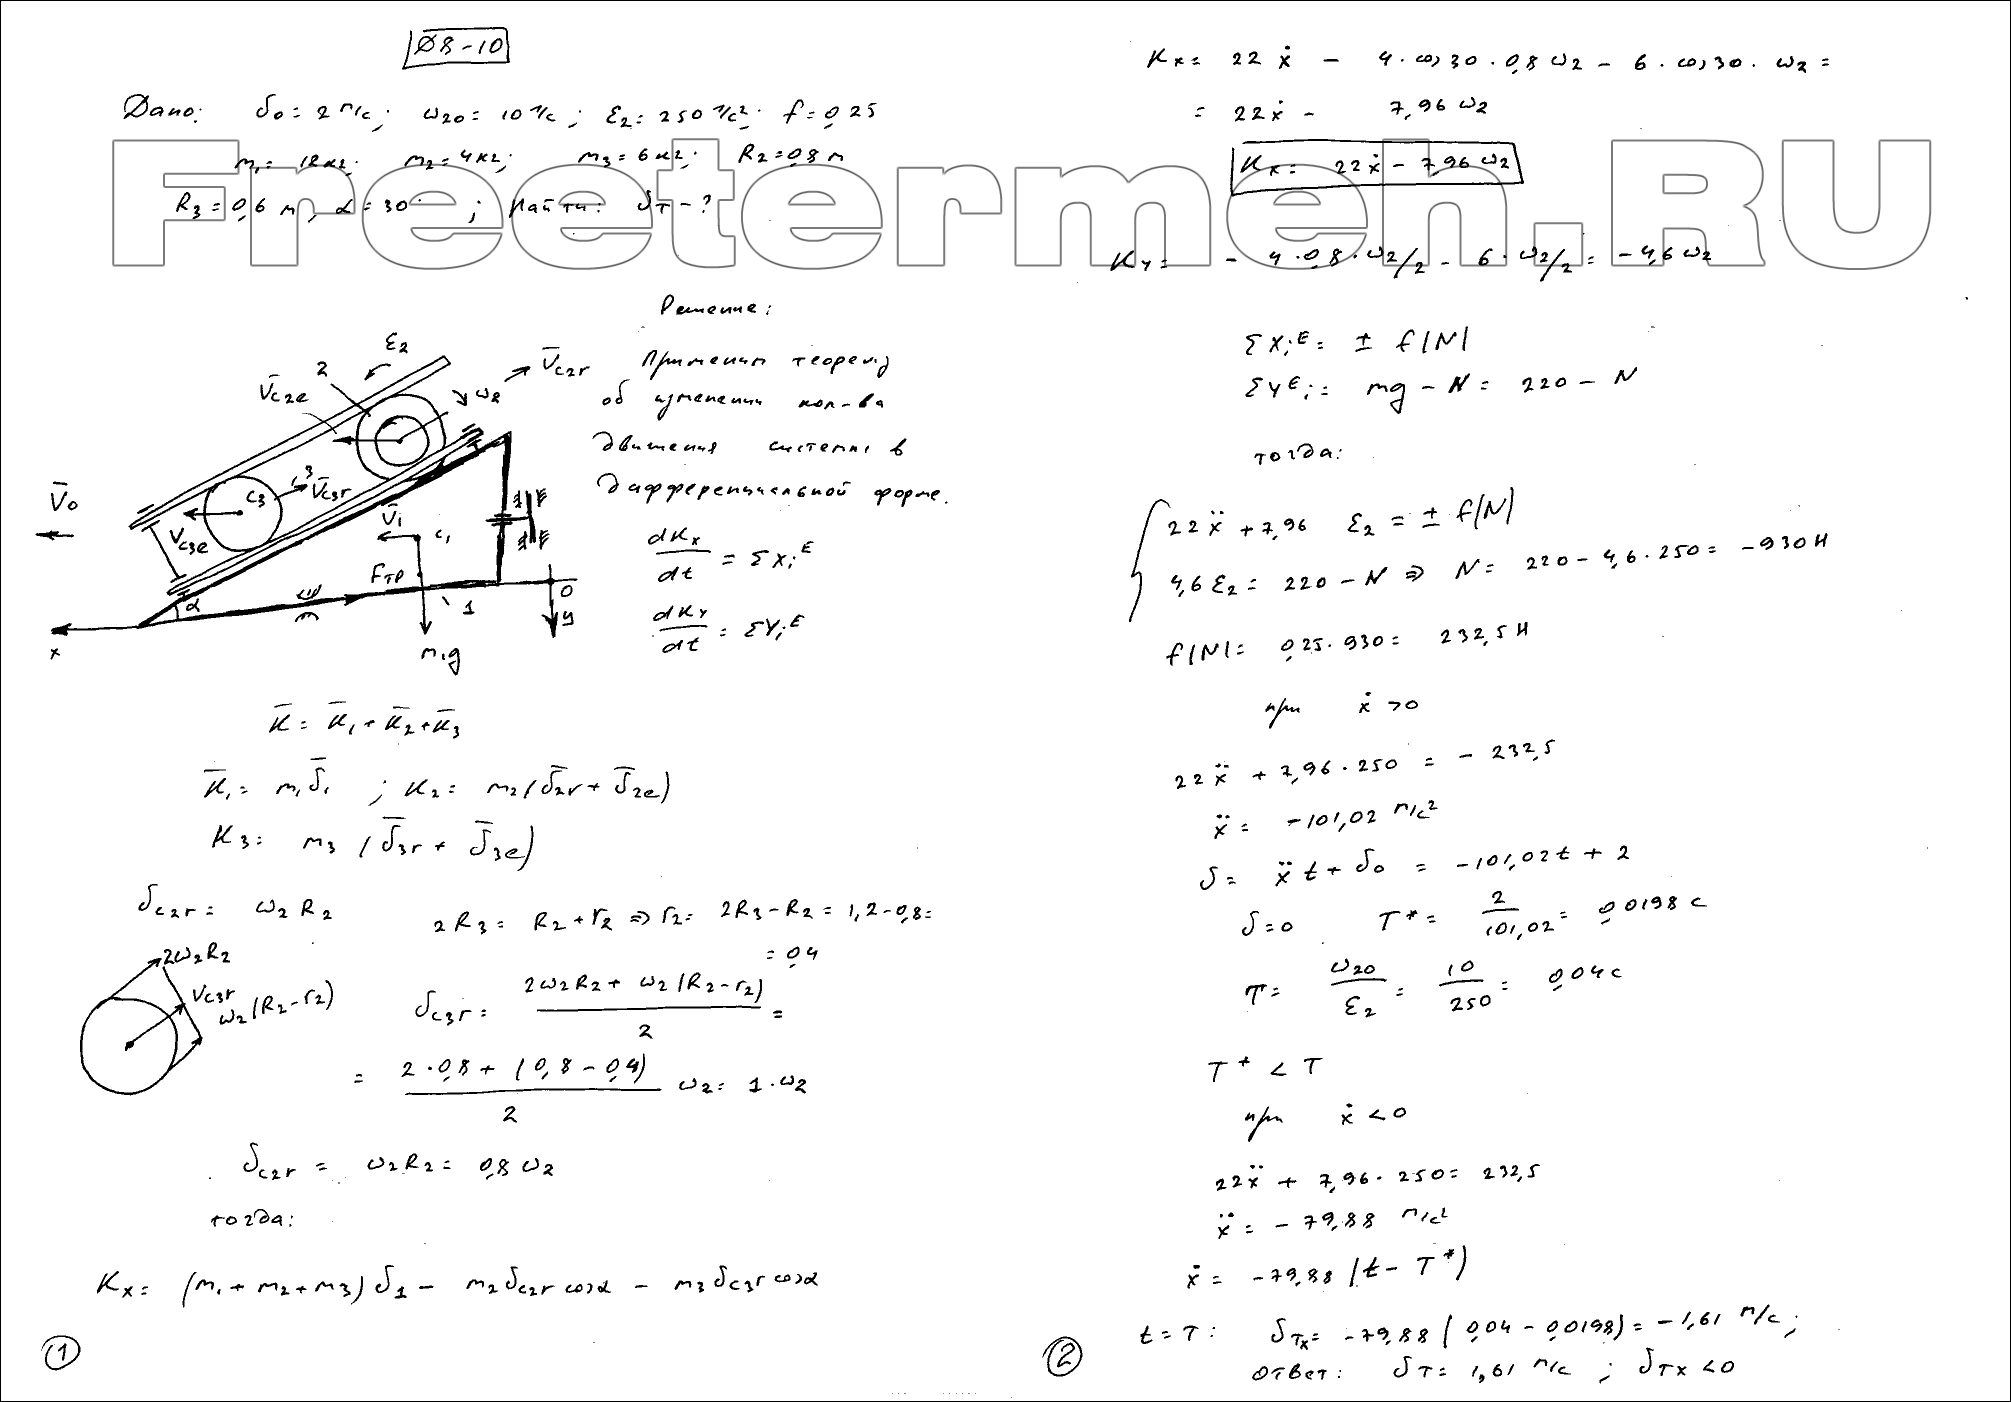 Д8-10
Дано: V₀ = 2 м/с; ω₂₀ = 10 1/с; ε₂ = 250 1/с²; f = 0,25
m₁ = 12 кг; m₂ = 4 кг; m₃ = 6 кг; R₂ = 0,8 м
R₃ = 0,6 м; α = 30°; Найти: Vτ - ?
Freetermen.RU
Решение:
Применим теорему
об изменении кол-ва
движения системы в
дифференциальной форме.
dKx/dt = ΣXᵢᴱ
dKy/dt = ΣYᵢᴱ
ε₂
2
V̄c₂e
V̄c₂r
ω₂
V̄₀
3
C₃
V̄c₃r
Vc₃e
V̄₁
C₁
Fтр
α
1
O
x
y
m₁g
K̄ = K̄₁ + K̄₂ + K̄₃
K̄₁ = m₁V̄₁ ; K₂ = m₂(V̄₂r + V̄₂e)
K₃ = m₃(V̄₃r + V̄₃e)
Vc₂r = ω₂R₂
2R₃ = R₂ + r₂ ⇒ r₂ = 2R₃ - R₂ = 1,2 - 0,8 =
= 0,4
2ω₂R₂
Vc₃r
ω₂(R₂ - r₂)
Vc₃r = (2ω₂R₂ + ω₂(R₂ - r₂))/2 =
= (2·0,8 + (0,8 - 0,4))/2 ω₂ = 1·ω₂
Vc₂r = ω₂R₂ = 0,8ω₂
тогда:
Kx = (m₁ + m₂ + m₃)V₁ - m₂Vc₂r cosα - m₃Vc₃r cosα
1
Kx = 22ẋ - 4·cos30·0,8ω₂ - 6·cos30·ω₂ =
= 22ẋ - 7,96ω₂
Kx = 22ẋ - 7,96ω₂
Ky = - 4·0,8·ω₂/2 - 6·ω₂/2 = -4,6ω₂
ΣXᵢᴱ = ± f|N|
ΣYᴱᵢ = mg - N = 220 - N
тогда:
22ẍ + 7,96 ε₂ = ± f|N|
4,6ε₂ = 220 - N ⇒ N = 220 - 4,6·250 = -930 Н
f|N| = 0,25·930 = 232,5 Н
при ẋ > 0
22ẍ + 7,96·250 = -232,5
ẍ = -101,02 м/с²
V = ẍt + V₀ = -101,02t + 2
V = 0 T* = 2/101,02 = 0,0198 с
T = ω₂₀/ε₂ = 10/250 = 0,04 с
T* < T
при ẋ < 0
22ẍ + 7,96·250 = 232,5
ẍ = -79,88 м/с²
ẋ = -79,88(t - T*)
t = T: Vτx = -79,88(0,04 - 0,0198) = -1,61 м/с;
ответ: Vτ = 1,61 м/с ; Vτx < 0
2